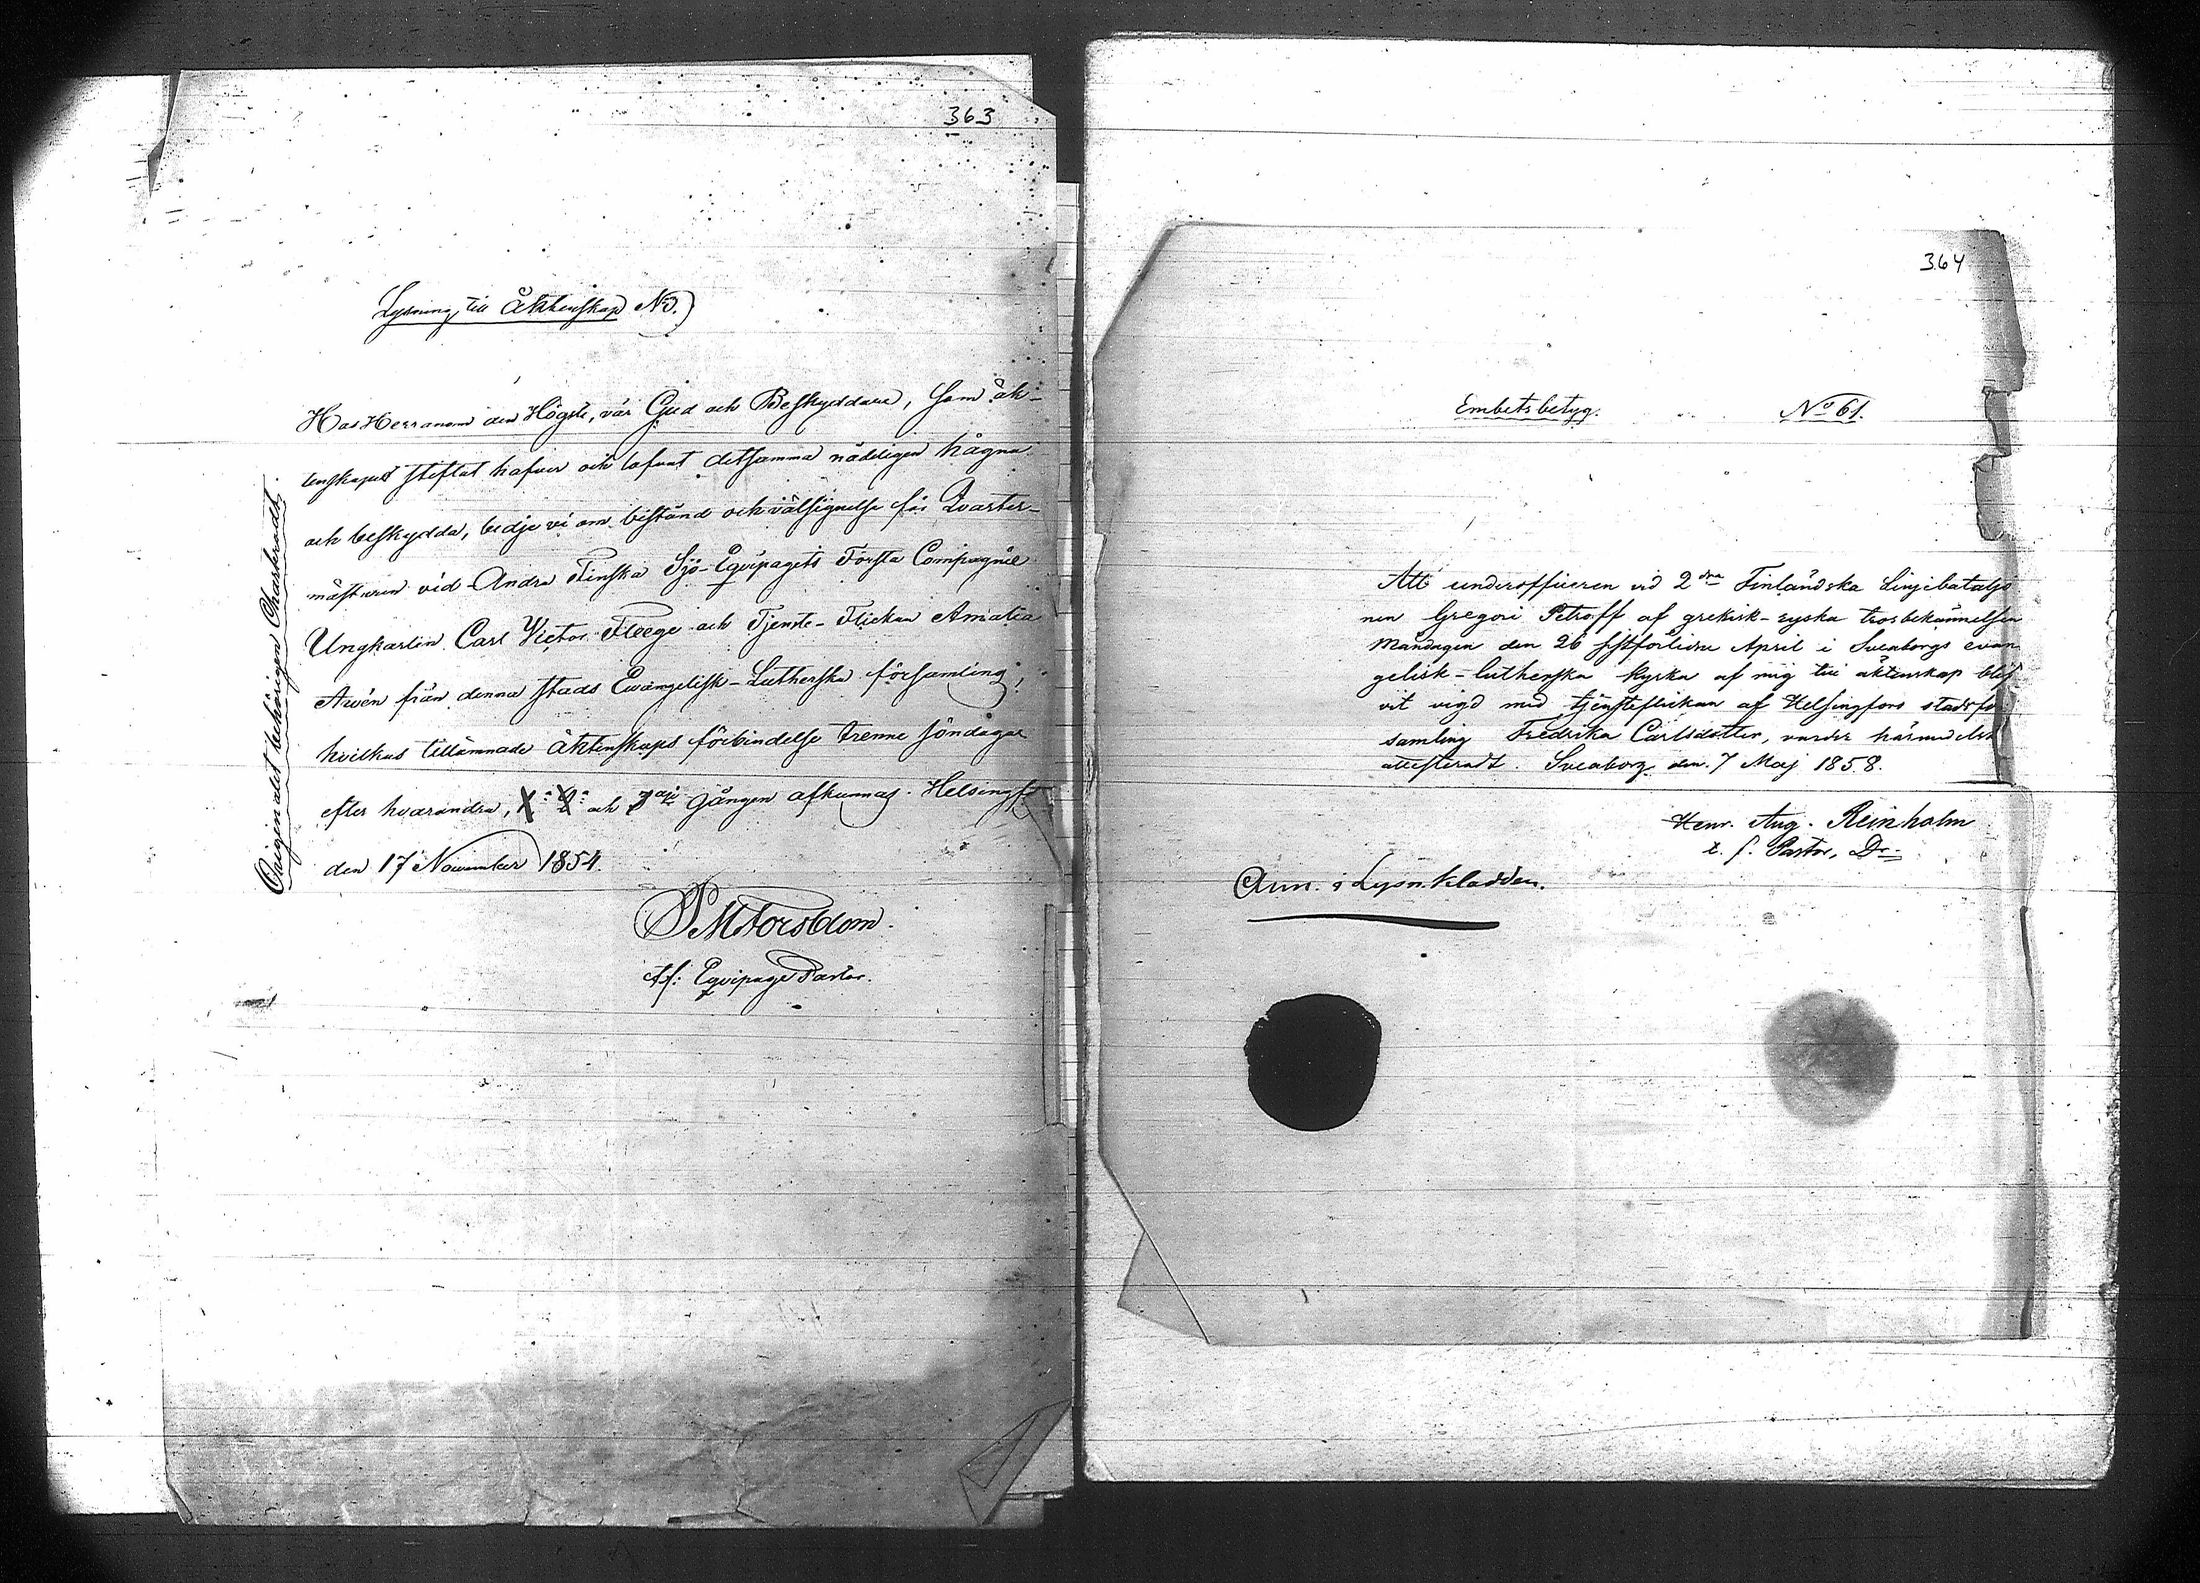 363
Lysning till Äktenskap N 3.)
Hos Herranom den Högste, vår Gud och Beskyddare, som äk-
tenskapet stiftat hafver och lofvat detsamma nådeligen hägna
och beskydda, bedje vi om bistånd och välsignelse för Qvarter-
mästaren vid Andra Finska Sjö-Eqvipagets Första Compagnie
Ungkarlen Carl Victor Fleege och Tjenste-Flickan Amalia
Arvén från denna stads Evangelisk-Lutherska församling,
hvilkas tillämnade äktenskaps förbindelse trenne söndagar
efter hvarandra, och 3dje gången afkunnas. Helsingfors
den 17 November 1854.
Forsblom.
Tf: Eqvipage Pastor.
Originalet behörigen Charteradt.
364
Embetsbetyg. No 61.
Att underofficeren vid 2dra Finländska Linjebataljo
nen Gregori Petroff af grekisk-ryska trosbekännelsen
Måndagen den 26 sistförlidne April i Sveaborgs evan
gelisk-lutherska kyrka af mig till äktenskap blif
vit vigd med tjensteflickan af Helsingfors stadsför
samling Fredrika Carlsdotter, varder härmedelst
attesteradt. Sveaborg den 7 Maj 1858.
Henr. Aug. Reinholm
t. f. Pastor, Dr.
Ann. i Lysn. kladden.